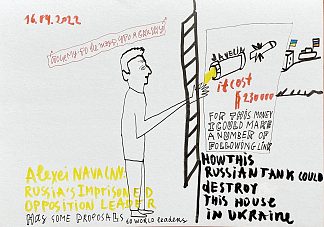 16.04.2022
JAVELIN
it cost
$ 230000
FOR THIS MONEY
I COULD MAKE
A NUMBER OF
FOLLOWING LINK
HOW THIS
RUSSIAN TANK COULD
DESTROY
THIS HOUSE
IN UKRAINE
Alexei NAVALNY
RUSSIA'S IMPRISONED
OPPOSITION LEADER
HAS SOME PROPOSALS to WORLD leaders